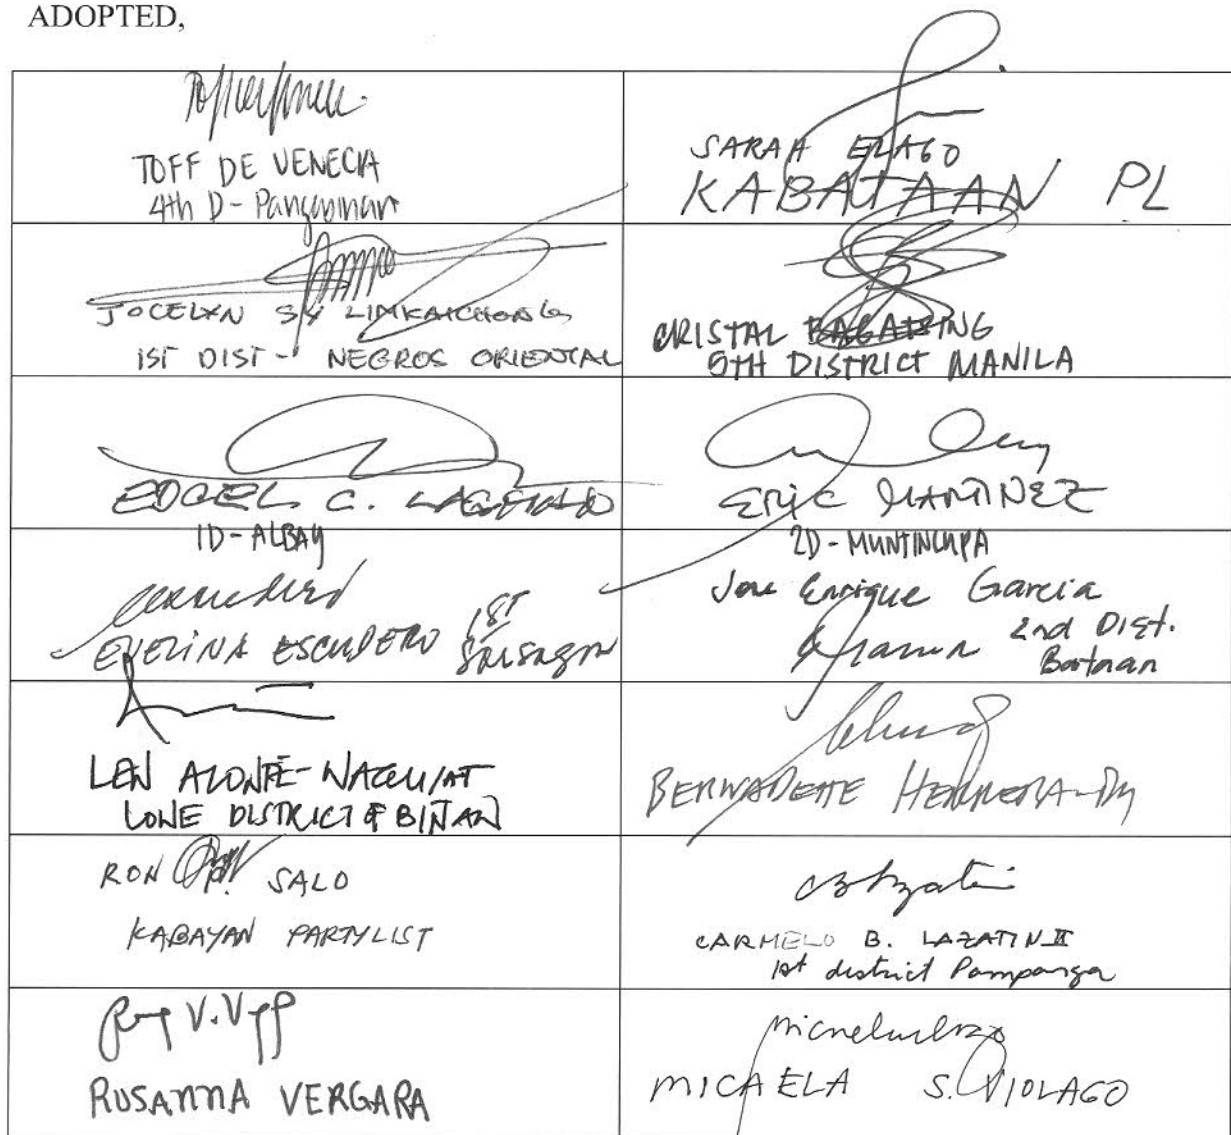 ADOPTED,
TOFF DE VENECIA
4th D - Pangasinan
SARAH ELAGO
KABATAAN PL
JOCELYN SY LIMKAICHONG
1ST DIST - NEGROS ORIENTAL
CRISTAL BAGATSING
5TH DISTRICT MANILA
EDCEL C. LAGMAN
1D - ALBAY
ERIC MARTINEZ
2D - MUNTINLUPA
EVELINA ESCUDERO 1ST
SORSOGON
Jose Enrique Garcia
2nd Dist.
Bataan
LEN ALONTE-NAGUIAT
LONE DISTRICT OF BIÑAN
BERNADETTE HERRERA-DY
RON SALO
KABAYAN PARTYLIST
CARMELO B. LAZATIN II
1st district Pampanga
ROSANNA VERGARA
MICAELA S. VIOLAGO